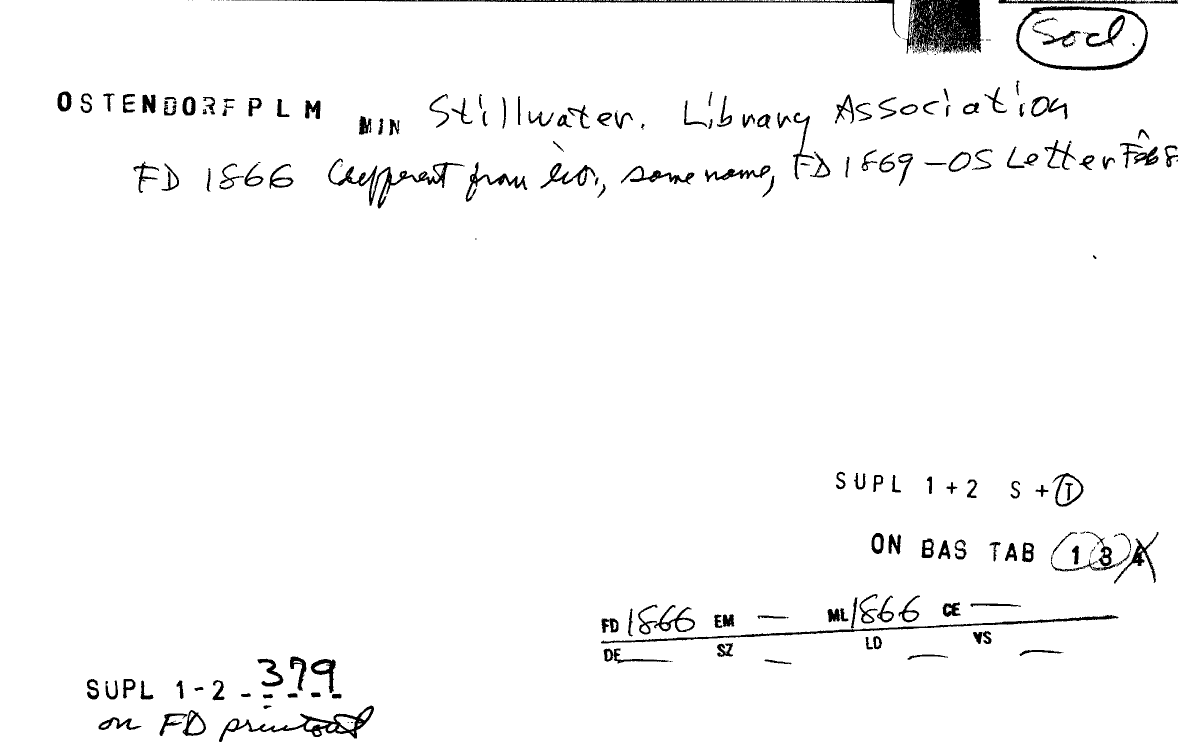 Socl.
OSTENDORFPLM MIN Stillwater. Library Association
FD 1866 from same name, FD 1869-OS Letter
SUPL 1+2 S+T
ON BAS TAB 1 3 4
FD 1866 EM — ML 1866 CE —
DE — SZ — LD — VS —
SUPL 1-2 - 379
on FD printout